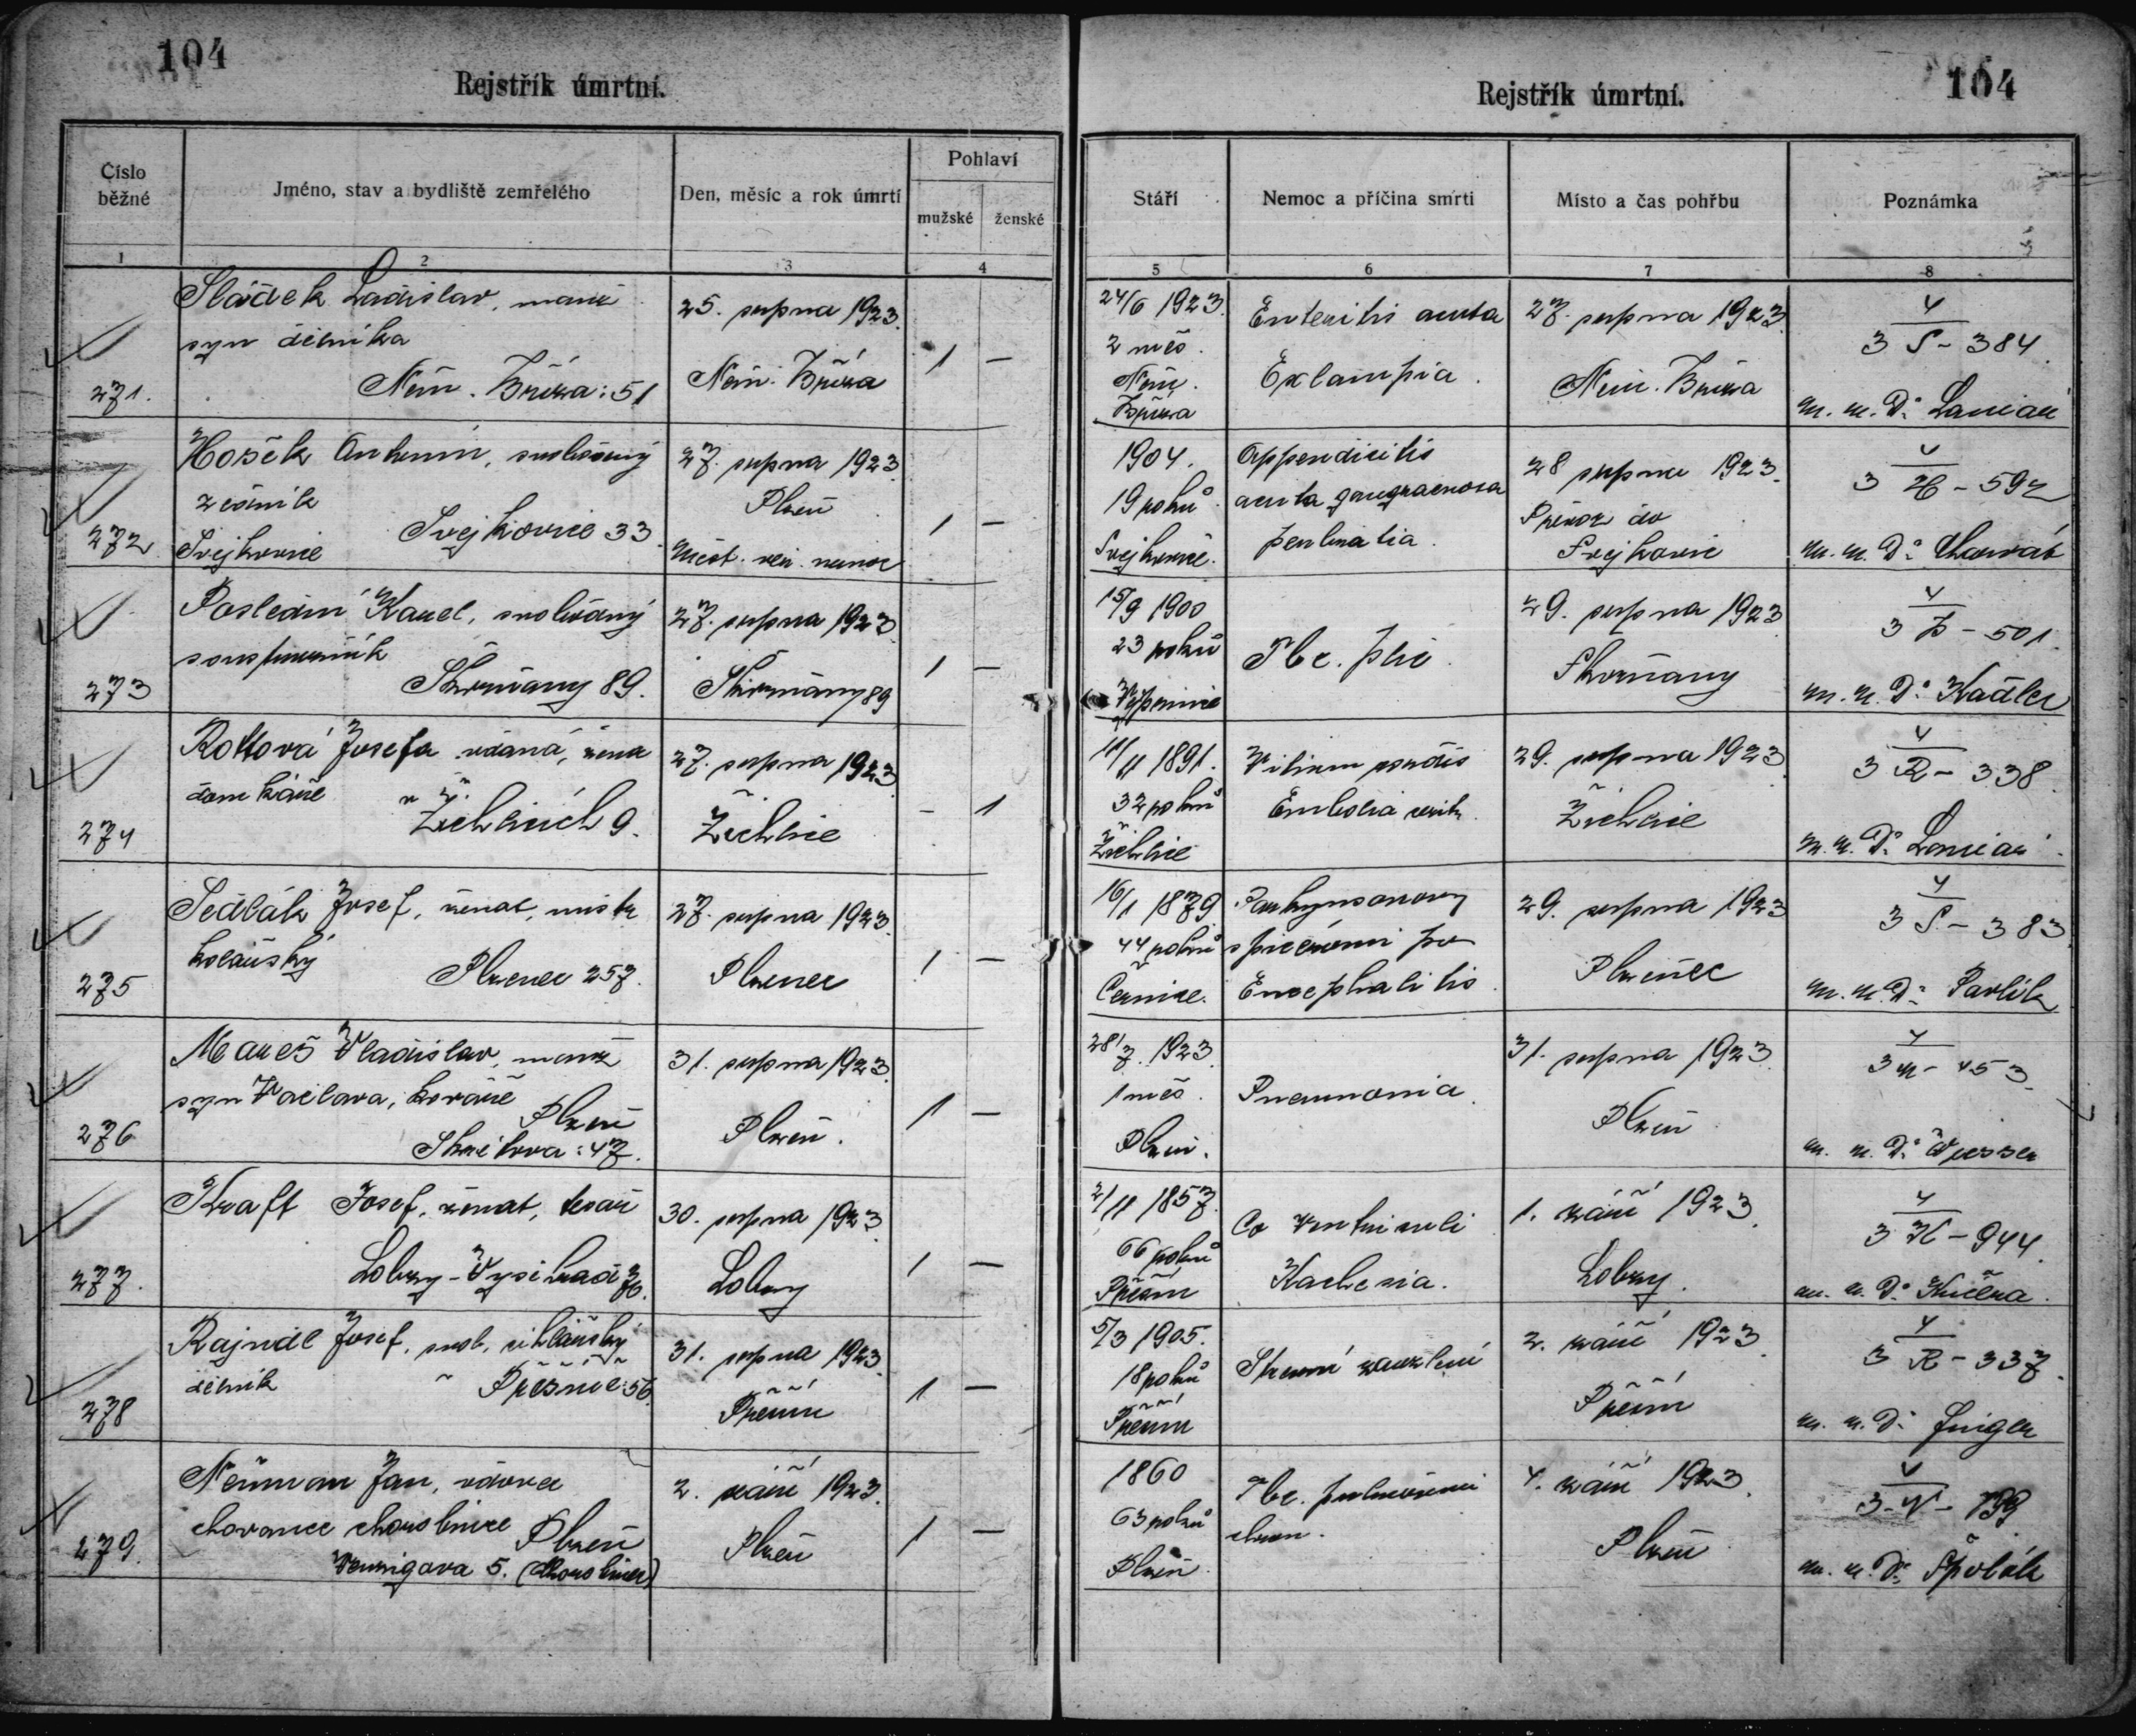 104
Rejstřík úmrtní.
Číslo běžné
Jméno, stav a bydliště zemřelého
Den, měsíc a rok úmrtí
Pohlaví
mužské
ženské
1
2
3
4
Sládek Ladislav, manž.
syn dělníka
271.
Něm. Bříza : 51
25. srpna 1923.
Něm. Bříza
1 –
Hošek Antonín, svobodný
zedník
272
Svejkovice
Svejkovice 33
27. srpna 1923
Plzeň
Měst. veř. nemoc
1 –
Poslední Karel, svobodný
soustružník
273
Skvrňany 89.
27. srpna 1923
Skvrňany 89
1 –
Rottová Josefa vdaná, žena
domkáře
274
v Žichlicích 9.
27. srpna 1923
Žichlice
– 1
Sedlák Josef, ženat, mistr
kolářský
275
Plzenec 257.
27. srpna 1923.
Plzenec
1 –
Mareš Vladislav, manž
syn Václava, kováře
Plzeň
276
: 47.
31. srpna 1923.
Plzeň.
1 –
Kraft Josef, ženat, tesař
277.
Lobzy - Vyšehrad
30. srpna 1923
Lobzy
1 –
Rajndl Josef, svob, cihlářský
dělník
Přešnice 56.
278
31. srpna 1923
1 –
Neuman Jan, vdovec
chovanec chorobince Plzeň
279.
5. (Chorobinec)
2. září 1923.
Plzeň
1 –
104
Rejstřík úmrtní.
Stáří
Nemoc a příčina smrti
Místo a čas pohřbu
Poznámka
5
6
7
8
24/6 1923.
2 měs.
Něm.
Bříza
Enteritis acuta
Exlampsia.
27. srpna 1923
Něm. Bříza
4
3 S - 384.
m. u. Dr.
1904.
19 roků
Svejkovic.
Appendicitis
acuta gangraenosa
28 srpna 1923.
Převoz do
Svejkovic
3 H - 592
m. u. Dr. Charvát
15/9 1900
23 roků
Tbc. plic.
29. srpna 1923
Skvrňany
4
3 P - 501.
m. u. Dr. Kadlec
11/11 1891.
32 roků
Žichlice
Vitium cordis
Embolia
29. srpna 1923
Žichlice
4
3 R - 338
m. u. Dr.
16/1 1879
44 roků
Černice.
Encephalitis
29. srpna 1923
Plzenec
4
3 S - 383
m. u. Dr. Pavlík
28/7. 1923
1 měs.
Plzeň.
Pneumonia.
31. srpna 1923
Plzeň
4
3 M - 453.
m. u. Dr.
2/11 1857.
66 roků
Ca ventriculi
Kachexia.
1. září 1923.
Lobzy.
4
3 K - 944
m. u. Dr. Kučera.
5/3 1905.
18 roků
2. září 1923.
4
3 R - 337.
m. u. Dr.
1860
63 roků
Plzeň.
Tbc. pulmonum
chron.
4. září 1923.
Plzeň
3 - N - 139
m. u. Dr. Špoták